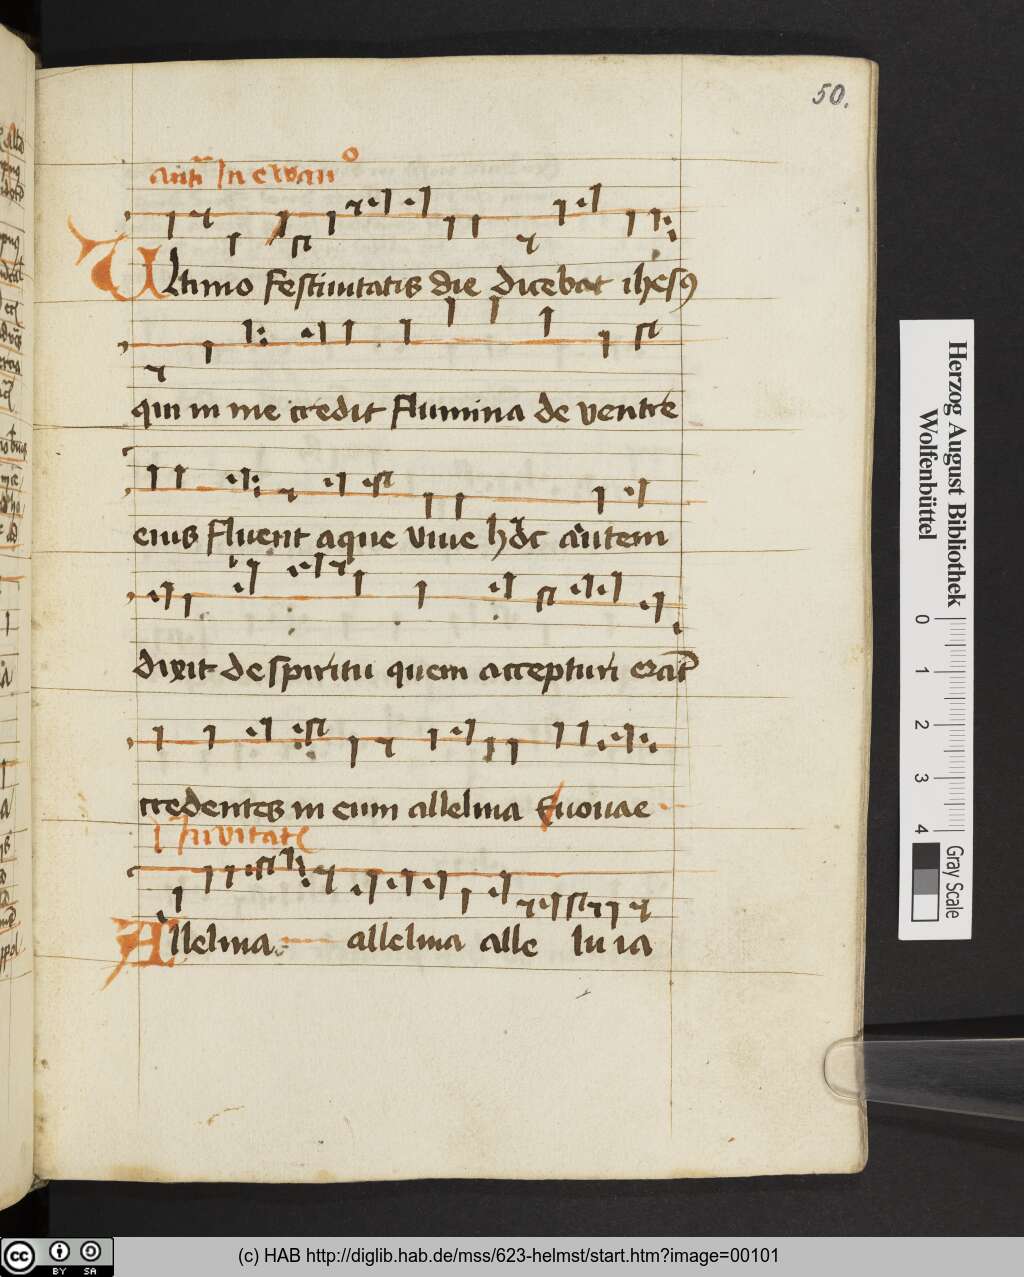 50.
antī In ewan°
Ultimo festiuitatis die dicebat ihesꝯ
qui in me credit flumina de ventre
eius fluent aque viue hoc autem
dixit de spiritu quem accepturi erāt
credentes in eum alleliua Euouae
Inuitatꝭ
Alleluia alleluia alle lu ia
Herzog August Bibliothek
Wolfenbüttel
0 1 2 3 4
Gray Scale
cc BY SA
(c) HAB http://diglib.hab.de/mss/623-helmst/start.htm?image=00101